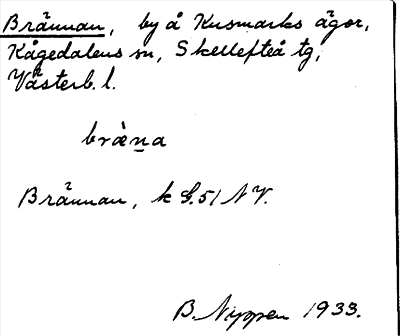 Brännan, by å Kusmarks ägor,
Kågedalens sn, Skellefteå tg,
Västerb. l.
bræ̀na
Brännan, k G.51 NV.
B. Nippen 1933.